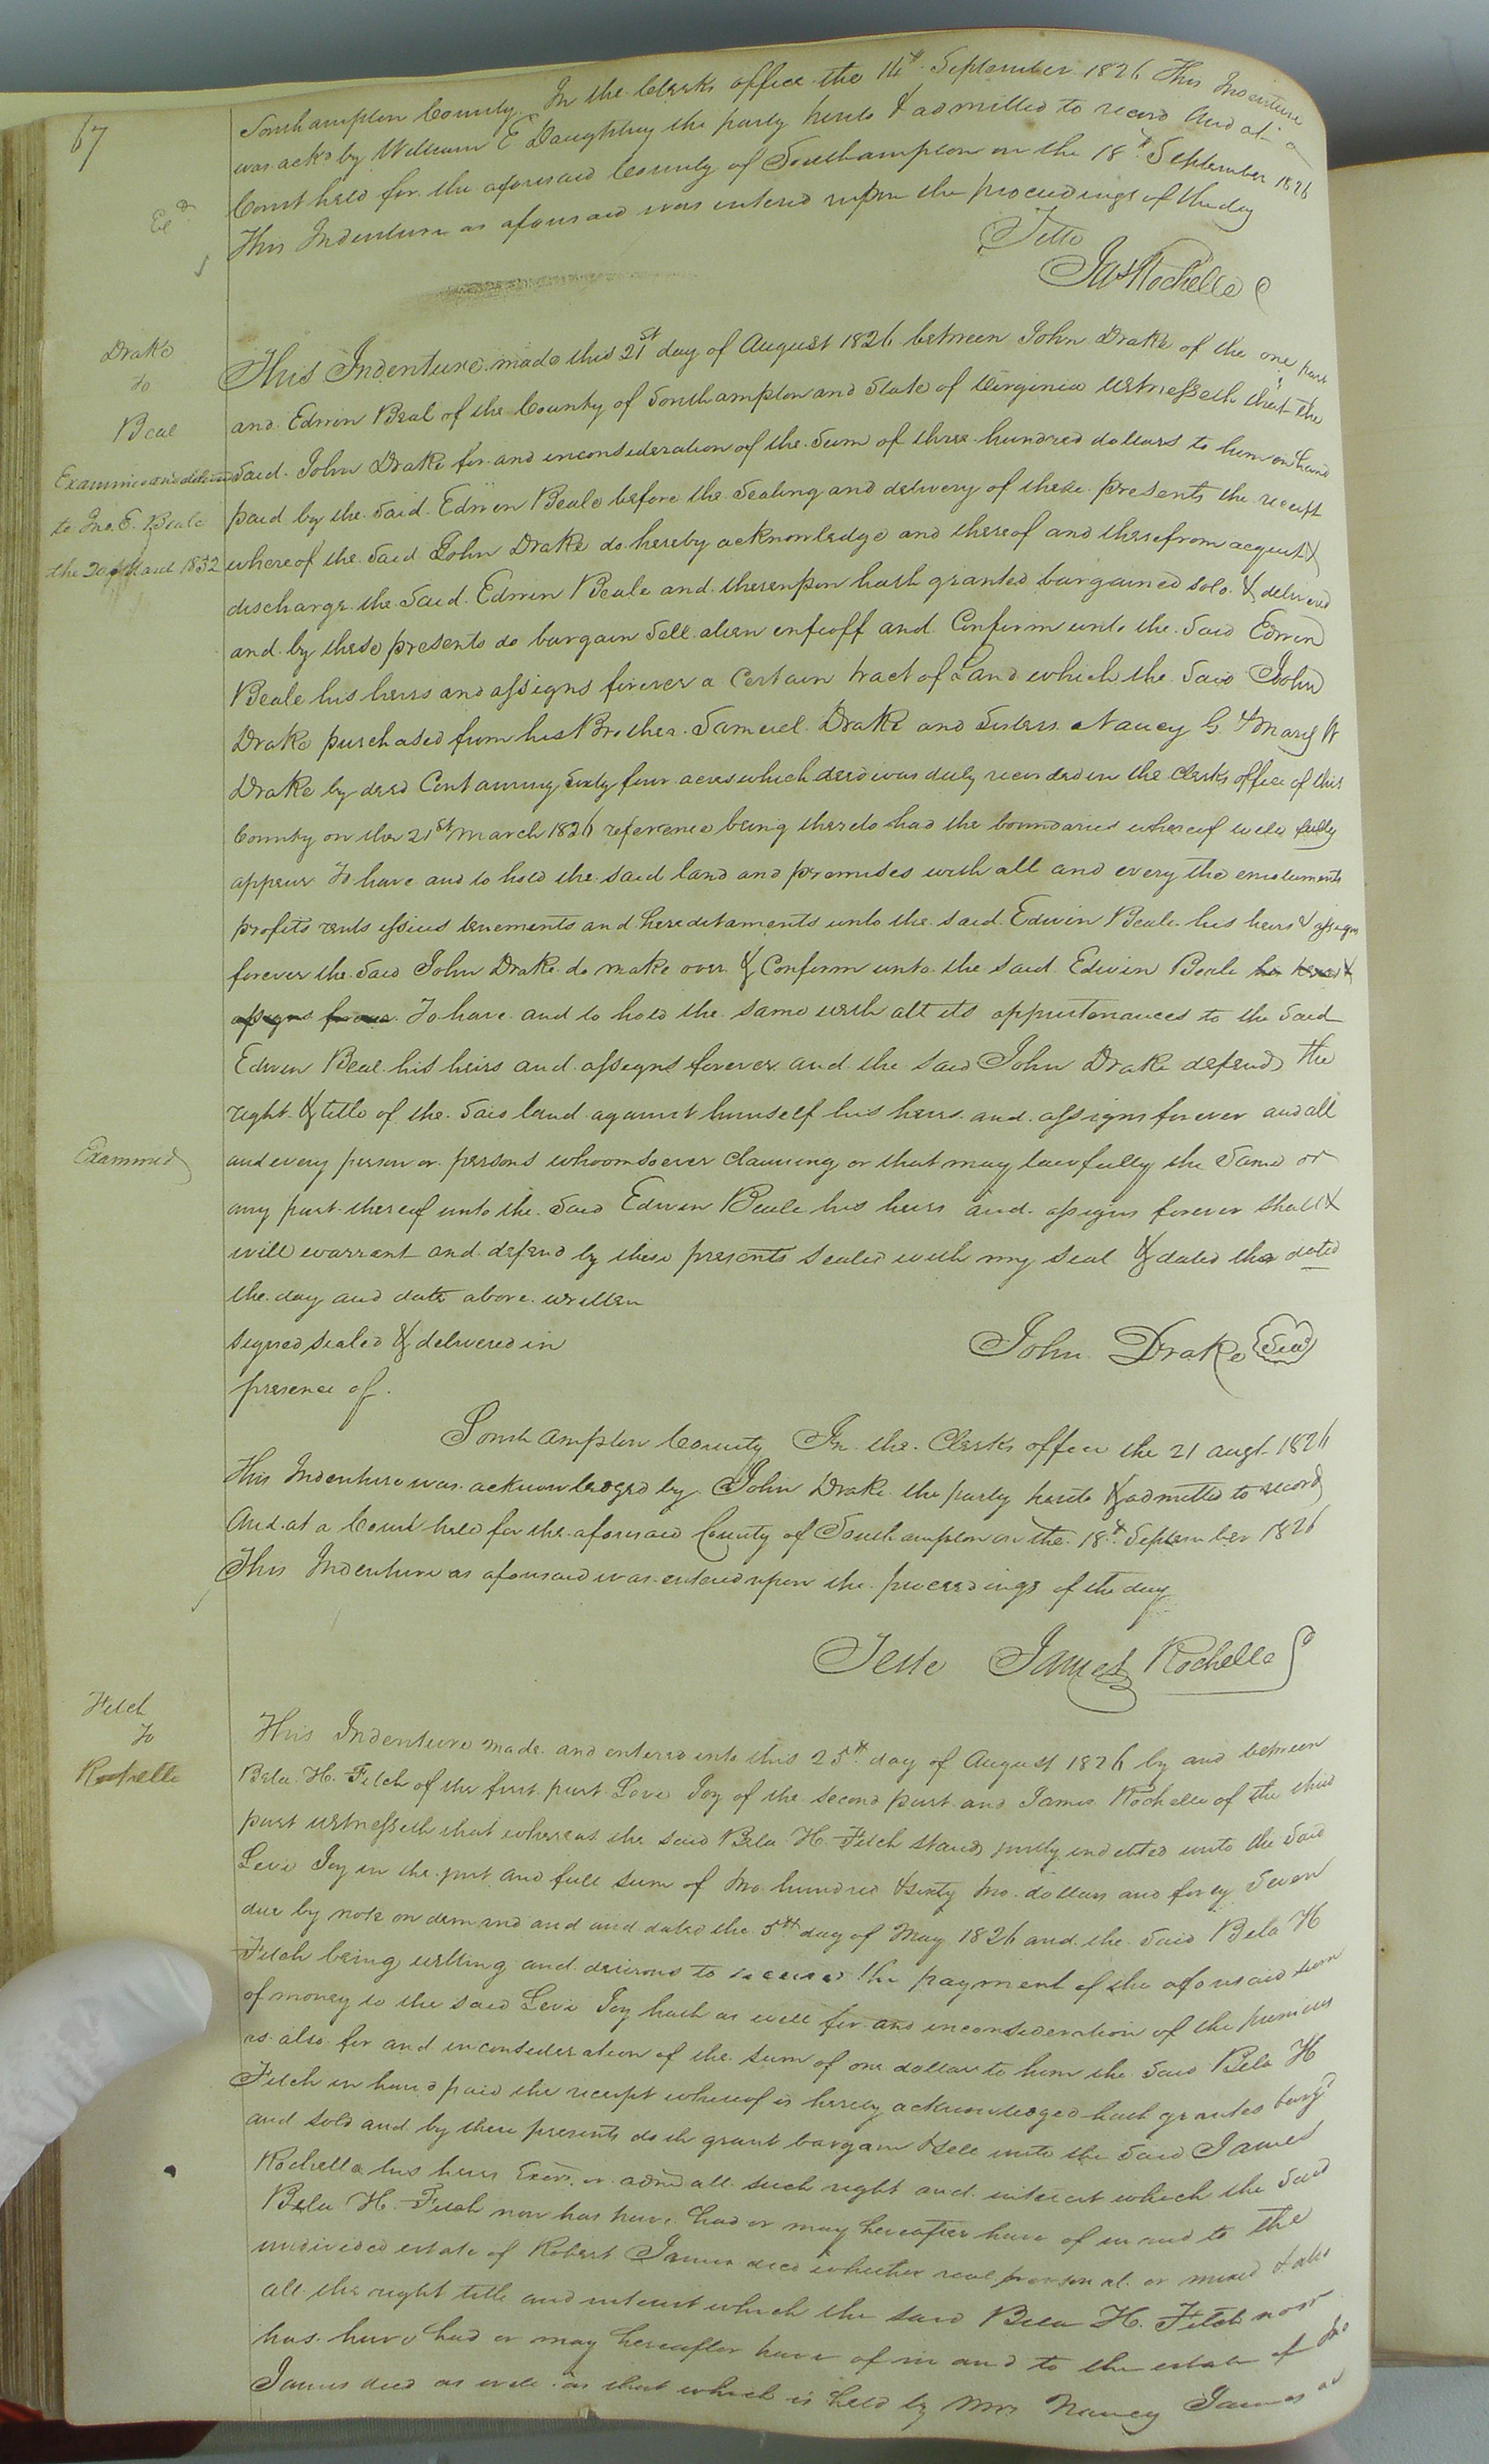 67
Southampton County, In the Clerks office the 14th September 1826 This Indenture
was ackd by William E Daughtrey the party hereto & admitted to record And at a
Court held for the aforesaid County of Southampton on the 18th September 1826
Exd
This Indenture as aforesaid was entered upon the proceedings of the day
Teste
Jas Rochelle C
Drake
to
Beal
Examined and delivered
to Jno. E. Beale
the March 1832
This Indenture made this 21st day of August 1826 between John Drake of the one part
and Edwin Beal of the County of Southampton and State of Virginia Witnesseth that the
Said John Drake for and inconsideration of the Sum of three hundred dollars to him in hand
paid by the Said Edwin Beale before the Sealing and delivery of these presents the receipt
whereof the Said John Drake do hereby acknowledge and thereof and therefrom acquit &
discharge the Said Edwin Beale and thereupon hath granted bargained sold & delivered
and by these presents do bargain Sell alien enfeoff and Confirm unto the Said Edwin
Beale his heirs and assigns forever a Certain tract of Land which the Said John
Drake purchased from his Brother Samuel Drake and Sisters Nancy G. & Mary W
Drake by deed Containing Sixty four acres which deed was duly recorded in the Clerks office of this
County on the 21st March 1826 reference being thereto had the boundaries whereof will fully
appear To have and to hold the said land and premises with all and every the emoluments
profits rents issues tenements and hereditaments unto the said Edwin Beale his heirs & assigns
forever the Said John Drake do make over & Confirm unto the said Edwin Beale his heirs &
assigns forever To have and to hold the same with all its appurtenances to the Said
Edwin Beal his heirs and assigns forever and the said John Drake defend the
right & title of the Said land against himself his heirs and assigns forever and all
Examined
and every person or persons whoomsoever claiming or that may lawfully the Same or
any part thereof unto the Said Edwin Beale his heirs and assigns forever shall &
will warrant and defend by these presents sealed with my seal & dated the dated
the day and date above written
signed sealed & delivered in
presence of
John Drake Seal
Southampton County In the Clerks office the 21 augt 1826
This Indenture was acknowledged by John Drake the party hereto & admitted to record
And at a Court held for the aforesaid County of Southampton on the 18th September 1826
This Indenture as aforesaid was entered upon the proceedings of the day
Teste James Rochelle C
Fitch
To
Rochelle
This Indenture made and entered into this 25th day of August 1826 by and between
Bela H. Fitch of the first part Levi Joy of the second part and James Rochelle of the third
part witnesseth that whereas the said Bela H. Fitch stands justly indebted unto the Said
Levi Joy in the just and full sum of two hundred & sixty two dollars and forty Seven
due by note on demand and and dated the 5th day of May 1826 and the Said Bela H
Fitch being willing and desirous to secure the payment of the aforesaid sum
of money to the said Levi Joy hath as well for and inconsideration of the premises
as also for and inconsideration of the sum of one dollar to him the Said Bela H
Fitch in hand paid the receipt whereof is hereby acknowledged hath granted bargd
and sold and by these presents doth grant bargain & sell unto the Said James
Rochelle his heirs Exors or admd all such right and interest which the Said
Bela H. Fitch now has have had or may hereafter have of in and to the
undivided estate of Robert James decd whether real personal or mixed & also
all the right title and interest which the said Bela H. Fitch now
has have had or may hereafter have of in and to the estate of
James decd as well as that which is held by Mrs Nancy James